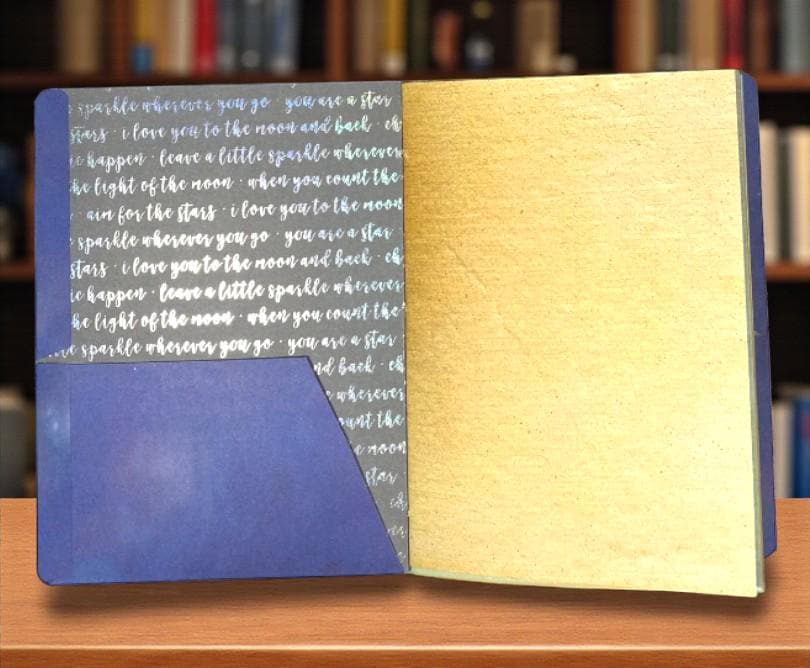 sparkle wherever you go · you are a star
stars · i love you to the moon and back · ch
ic happen · leave a little sparkle wherever
he light of the moon · when you count the
· aim for the stars · i love you to the moon
sparkle wherever you go · you are a star
stars · i love you to the moon and back · ch
ic happen · leave a little sparkle wherever
he light of the moon · when you count the
sparkle wherever you go · you are a star
nd back · ch
wherever
ount the
moon
star
ch